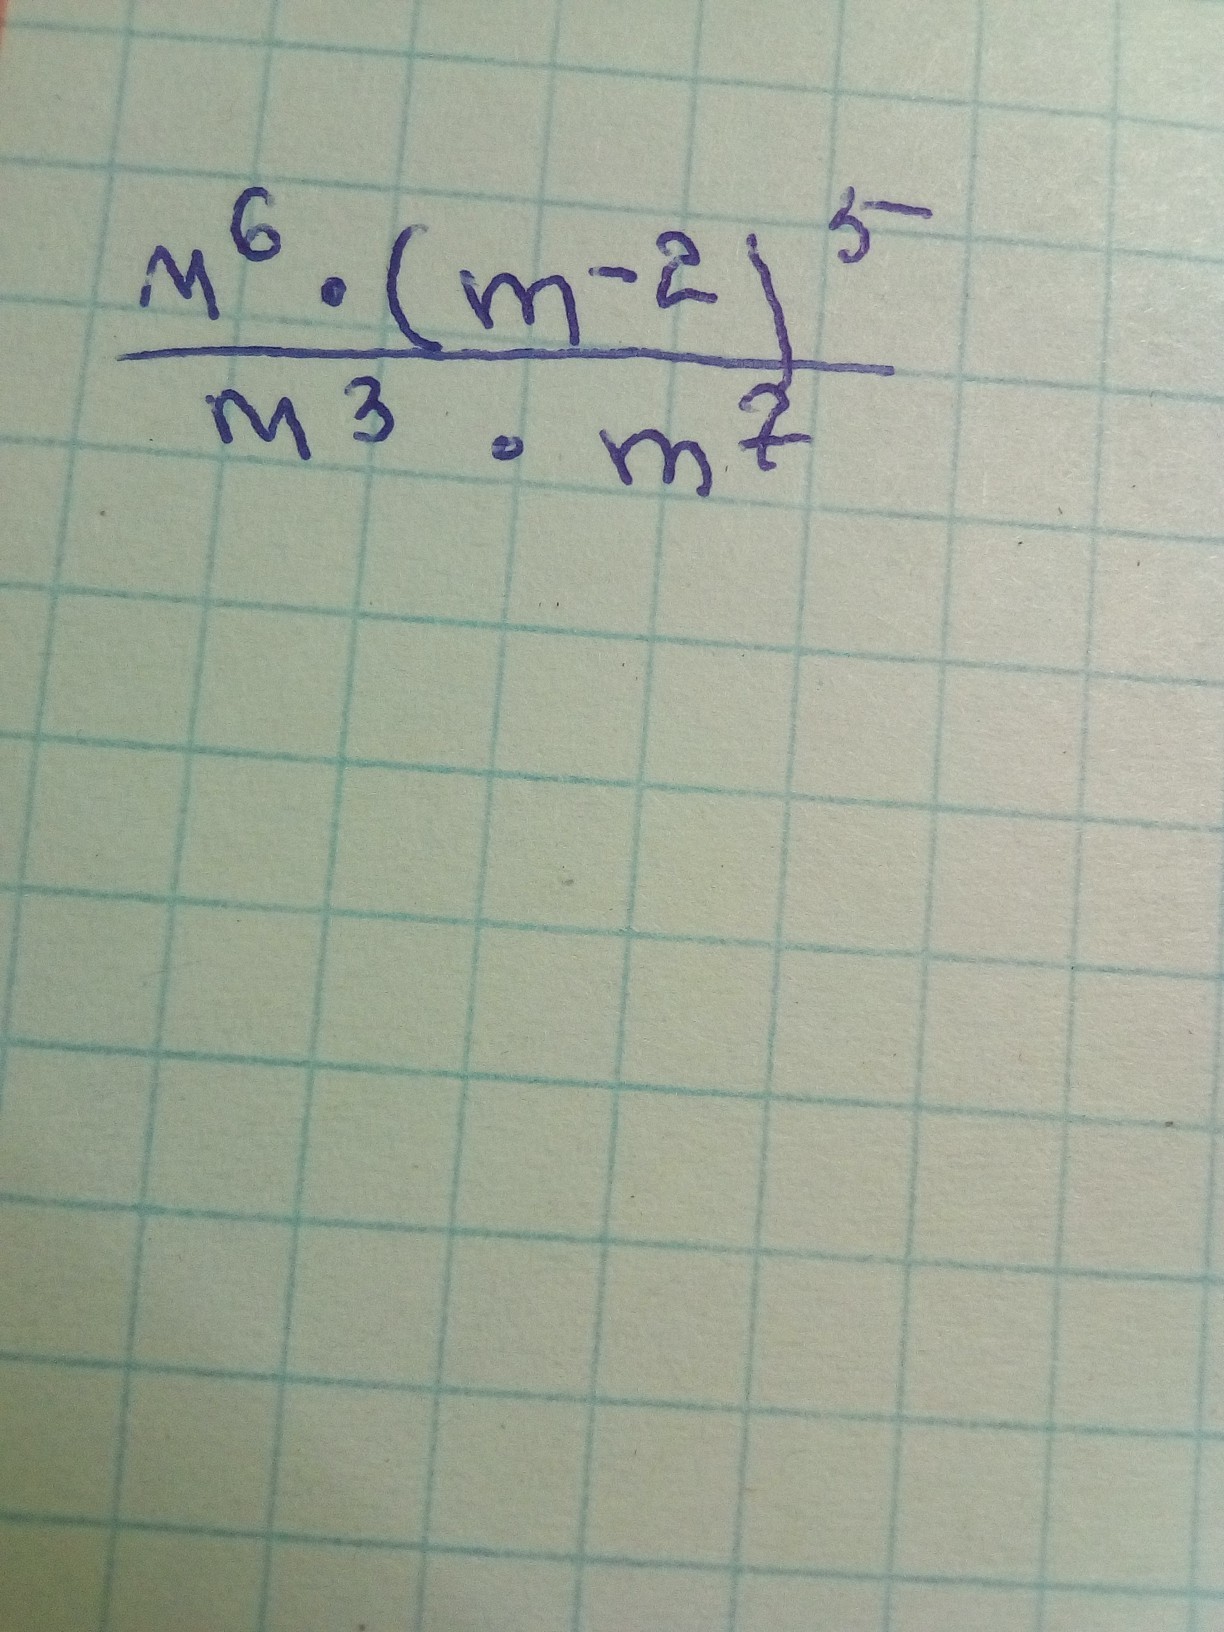 м⁶ · (m⁻²)⁵
m³ · m⁷